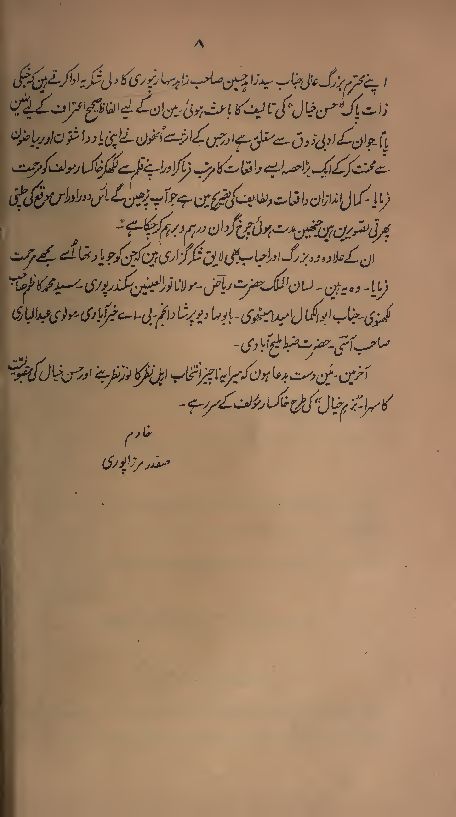 ۸
اپنے محترم بزرگ عالی جناب سید زاہد حسین صاحب زاہد سہارنپوری کا دلی شکریہ ادا کرتے ہین کہ جنکی
ذات پاک "حسن خیال" کی تالیف کا باعث ہوئی۔ مین ان کے لیے الفاظ صحیح اعتراف کے لیے نہین
پاتا۔ جو ان کے ادبی ذوق سے متعلق ہے اور جس کے اثر سے اُنھون نے اپنی یادداشتون اور بیاضون
سے محنت کر کے ایک بڑا حصہ ایسے واقعات کا مرتب فرما کر اور اپنے قلم سے لکھکر خاکسار مولف کو مرحمت
فرمایا۔ کمال انداز ان واقعات و لطایف کی تصریح مین ہے جو آپ پڑھین گے۔ اُس دور اور اس موقع کی چلتی
پھرتی تصویرین ہین جنھین مدت ہوئی چرخ گردان درہم و برہم کر چکا ہے۔
ان کے علاوہ وہ بزرگ اور احباب بھی لایق شکر گزاری ہین جن کو جو یاد تھا اُسے مجھے مرحمت
فرمایا۔ وہ یہ ہین۔ لسان الملک حضرت ریاض۔ مولانا نور العینین سکندرپوری۔ سید محمد کاظم صاحب
لکھنوی۔ جناب ابوالکمال امید امیٹھوی۔ بابو صادیو پرشاد انجم بی۔اے خیرآبادی مولوی عبدالباری
صاحب آسی۔ حضرت ضبط ملیح آبادی۔
آخر مین۔ مین دست بدعا ہون کہ میرا یہ ناچیز انتخاب اہل نظر کا نور نظر بنے اور حسن خیال کی مقبولیت
کا سہرا۔ "بزم خیال" کی طرح خاکسار مولف کے سر رہے۔
خادم
صفدر مرزاپوری